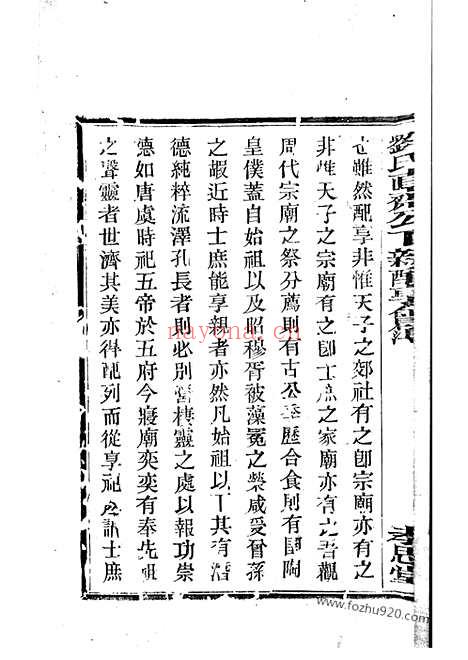 孝思堂
也雖然配享非惟天子之郊社有之卽宗廟亦有之
非惟天子之宗廟有之卽士庶之家廟亦有之吾觀
周代宗廟之祭分薦則有古公季歷合食則有
皇僕蓋自始祖以及昭穆胥被藻冕之榮咸受曾孫
之嘏近時士庶能享親者亦然凡始祖以下其有潛
德純粹流澤孔長者則必別營棲靈之處以報功崇
德如唐虞時祀五帝於五府今寢廟奕奕有奉先祖
之聲靈者世濟其美亦得配列而從享祀 士庶
nayona.cn
www.fozhu920.com